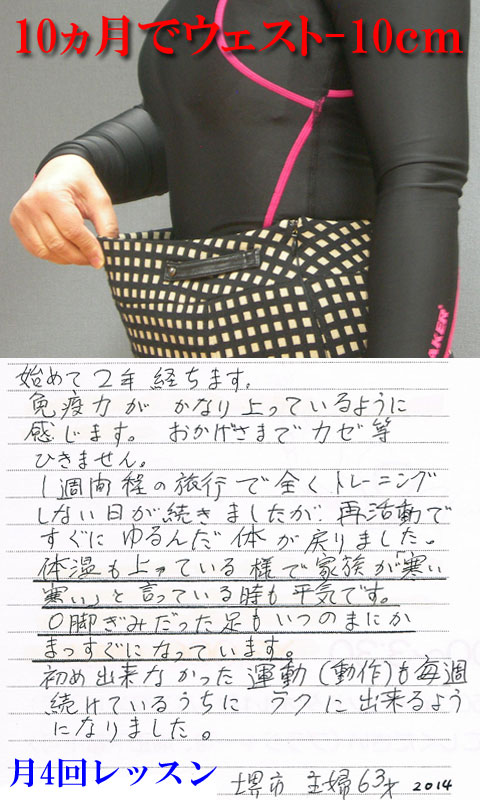 10ヵ月でウェスト-10cm
AKER
始めて2年経ちます。
免疫力が かなり上っているように
感じます。 おかげさまで カゼ等
ひきません。
1週間程の旅行で全くトレーニング
しない日が続きましたが、再活動で
すぐに ゆるんだ体が戻りました。
体温も上っている様で家族が「寒い
寒い」と言っている時も平気です。
O脚ぎみだった足もいつのまにか
まっすぐになっています。
初め出来なかった運動(動作)も毎週
続けているうちに ラクに出来るよう
になりました。
月4回レッスン
堺市 主婦63才 2014